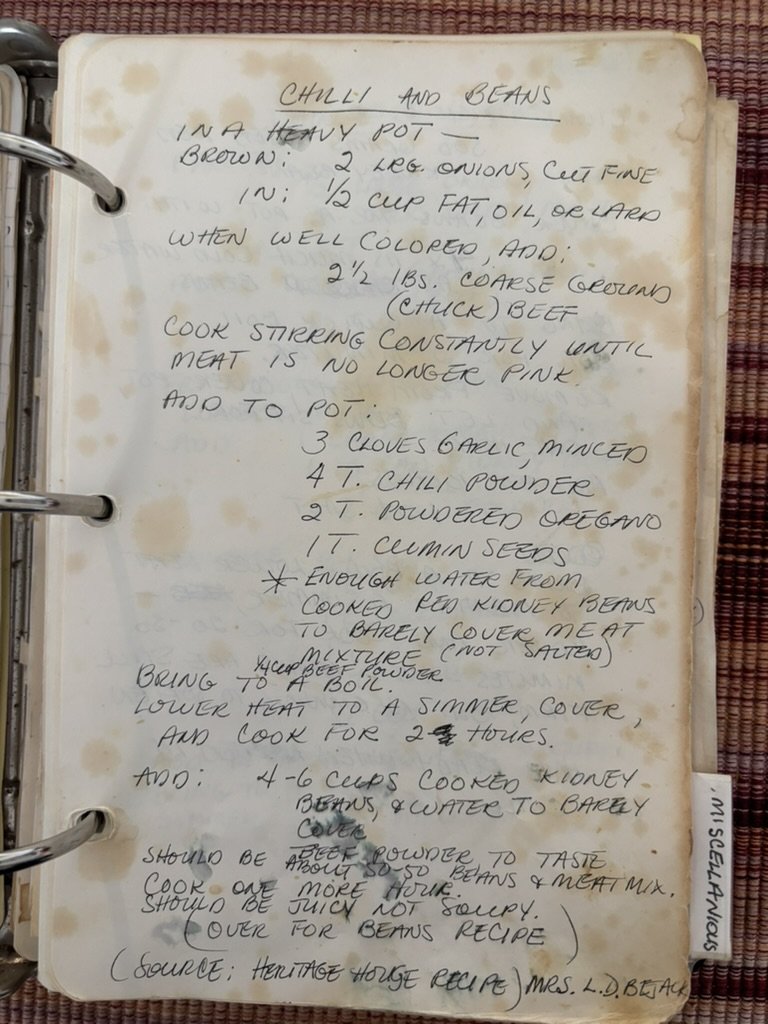 CHILLI AND BEANS
IN A HEAVY POT —
BROWN: 2 LRG. ONIONS, CUT FINE
IN: 1/2 CUP FAT, OIL, OR LARD
WHEN WELL COLORED, ADD:
2 1/2 lBS. COARSE GROUND
(CHUCK) BEEF
COOK STIRRING CONSTANTLY UNTIL
MEAT IS NO LONGER PINK.
ADD TO POT:
3 CLOVES GARLIC, MINCED
4 T. CHILI POWDER
2 T. POWDERED OREGANO
1 T. CUMIN SEEDS
* ENOUGH WATER FROM
COOKED RED KIDNEY BEANS
TO BARELY COVER MEAT
MIXTURE (NOT SALTED)
1/4 CUP BEEF POWDER
BRING TO A BOIL.
LOWER HEAT TO A SIMMER, COVER,
AND COOK FOR 2 HOURS.
ADD: 4-6 CUPS COOKED KIDNEY
BEANS, & WATER TO BARELY
COVER
BEEF POWDER TO TASTE
SHOULD BE ABOUT 50-50 BEANS & MEAT MIX.
COOK ONE MORE HOUR.
SHOULD BE JUICY NOT SOUPY.
(OVER FOR BEANS RECIPE)
(SOURCE: HERITAGE HOUSE RECIPE) MRS. L.D. BEJACK
MISCELANIOUS